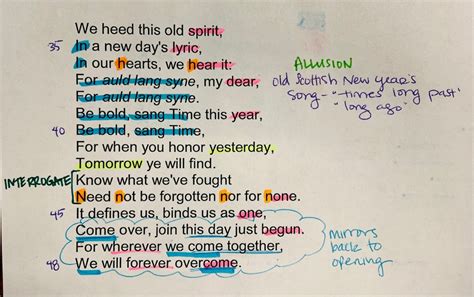 We heed this old spirit,
35 In a new day's lyric,
In our hearts, we hear it:
For auld lang syne, my dear,
For auld lang syne.
Be bold, sang Time this year,
40 Be bold, sang Time,
For when you honor yesterday,
Tomorrow ye will find.
Know what we've fought
Need not be forgotten nor for none.
45 It defines us, binds us as one,
Come over, join this day just begun.
For wherever we come together,
48 We will forever overcome.
INTERROGATE
ALLUSION
old Scottish New Year's
song - "times long past"
"long ago"
mirrors
back to
opening